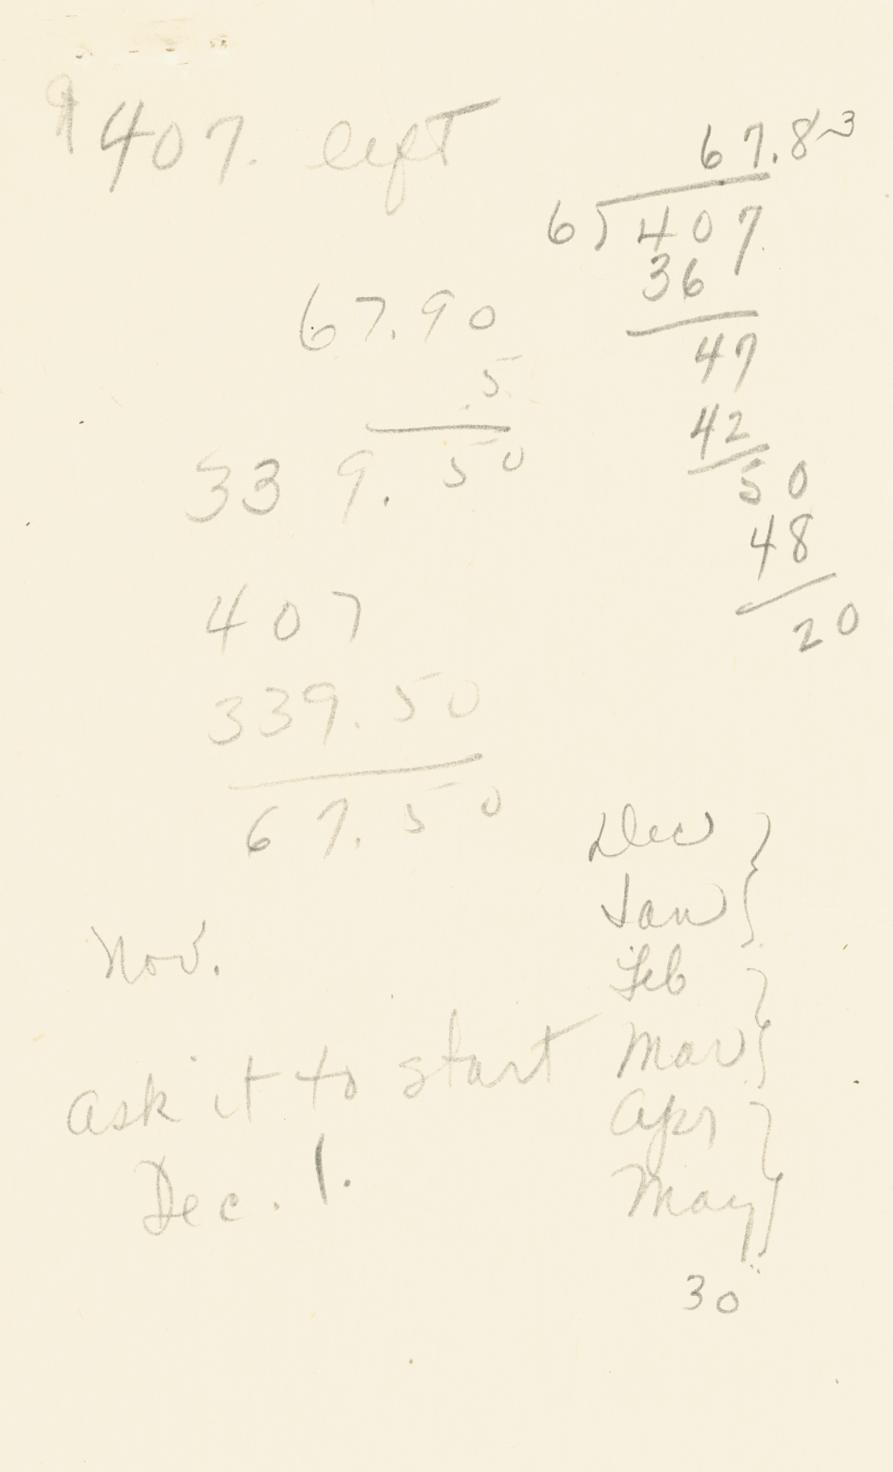 $407. left
67.83
6)407
36
47
42
50
48
20
67.90
.5
339.50
407
339.50
67.50
Dec
Jan
Feb
Mar
Apr
May
30
Nov.
Ask it to start
Dec. 1.